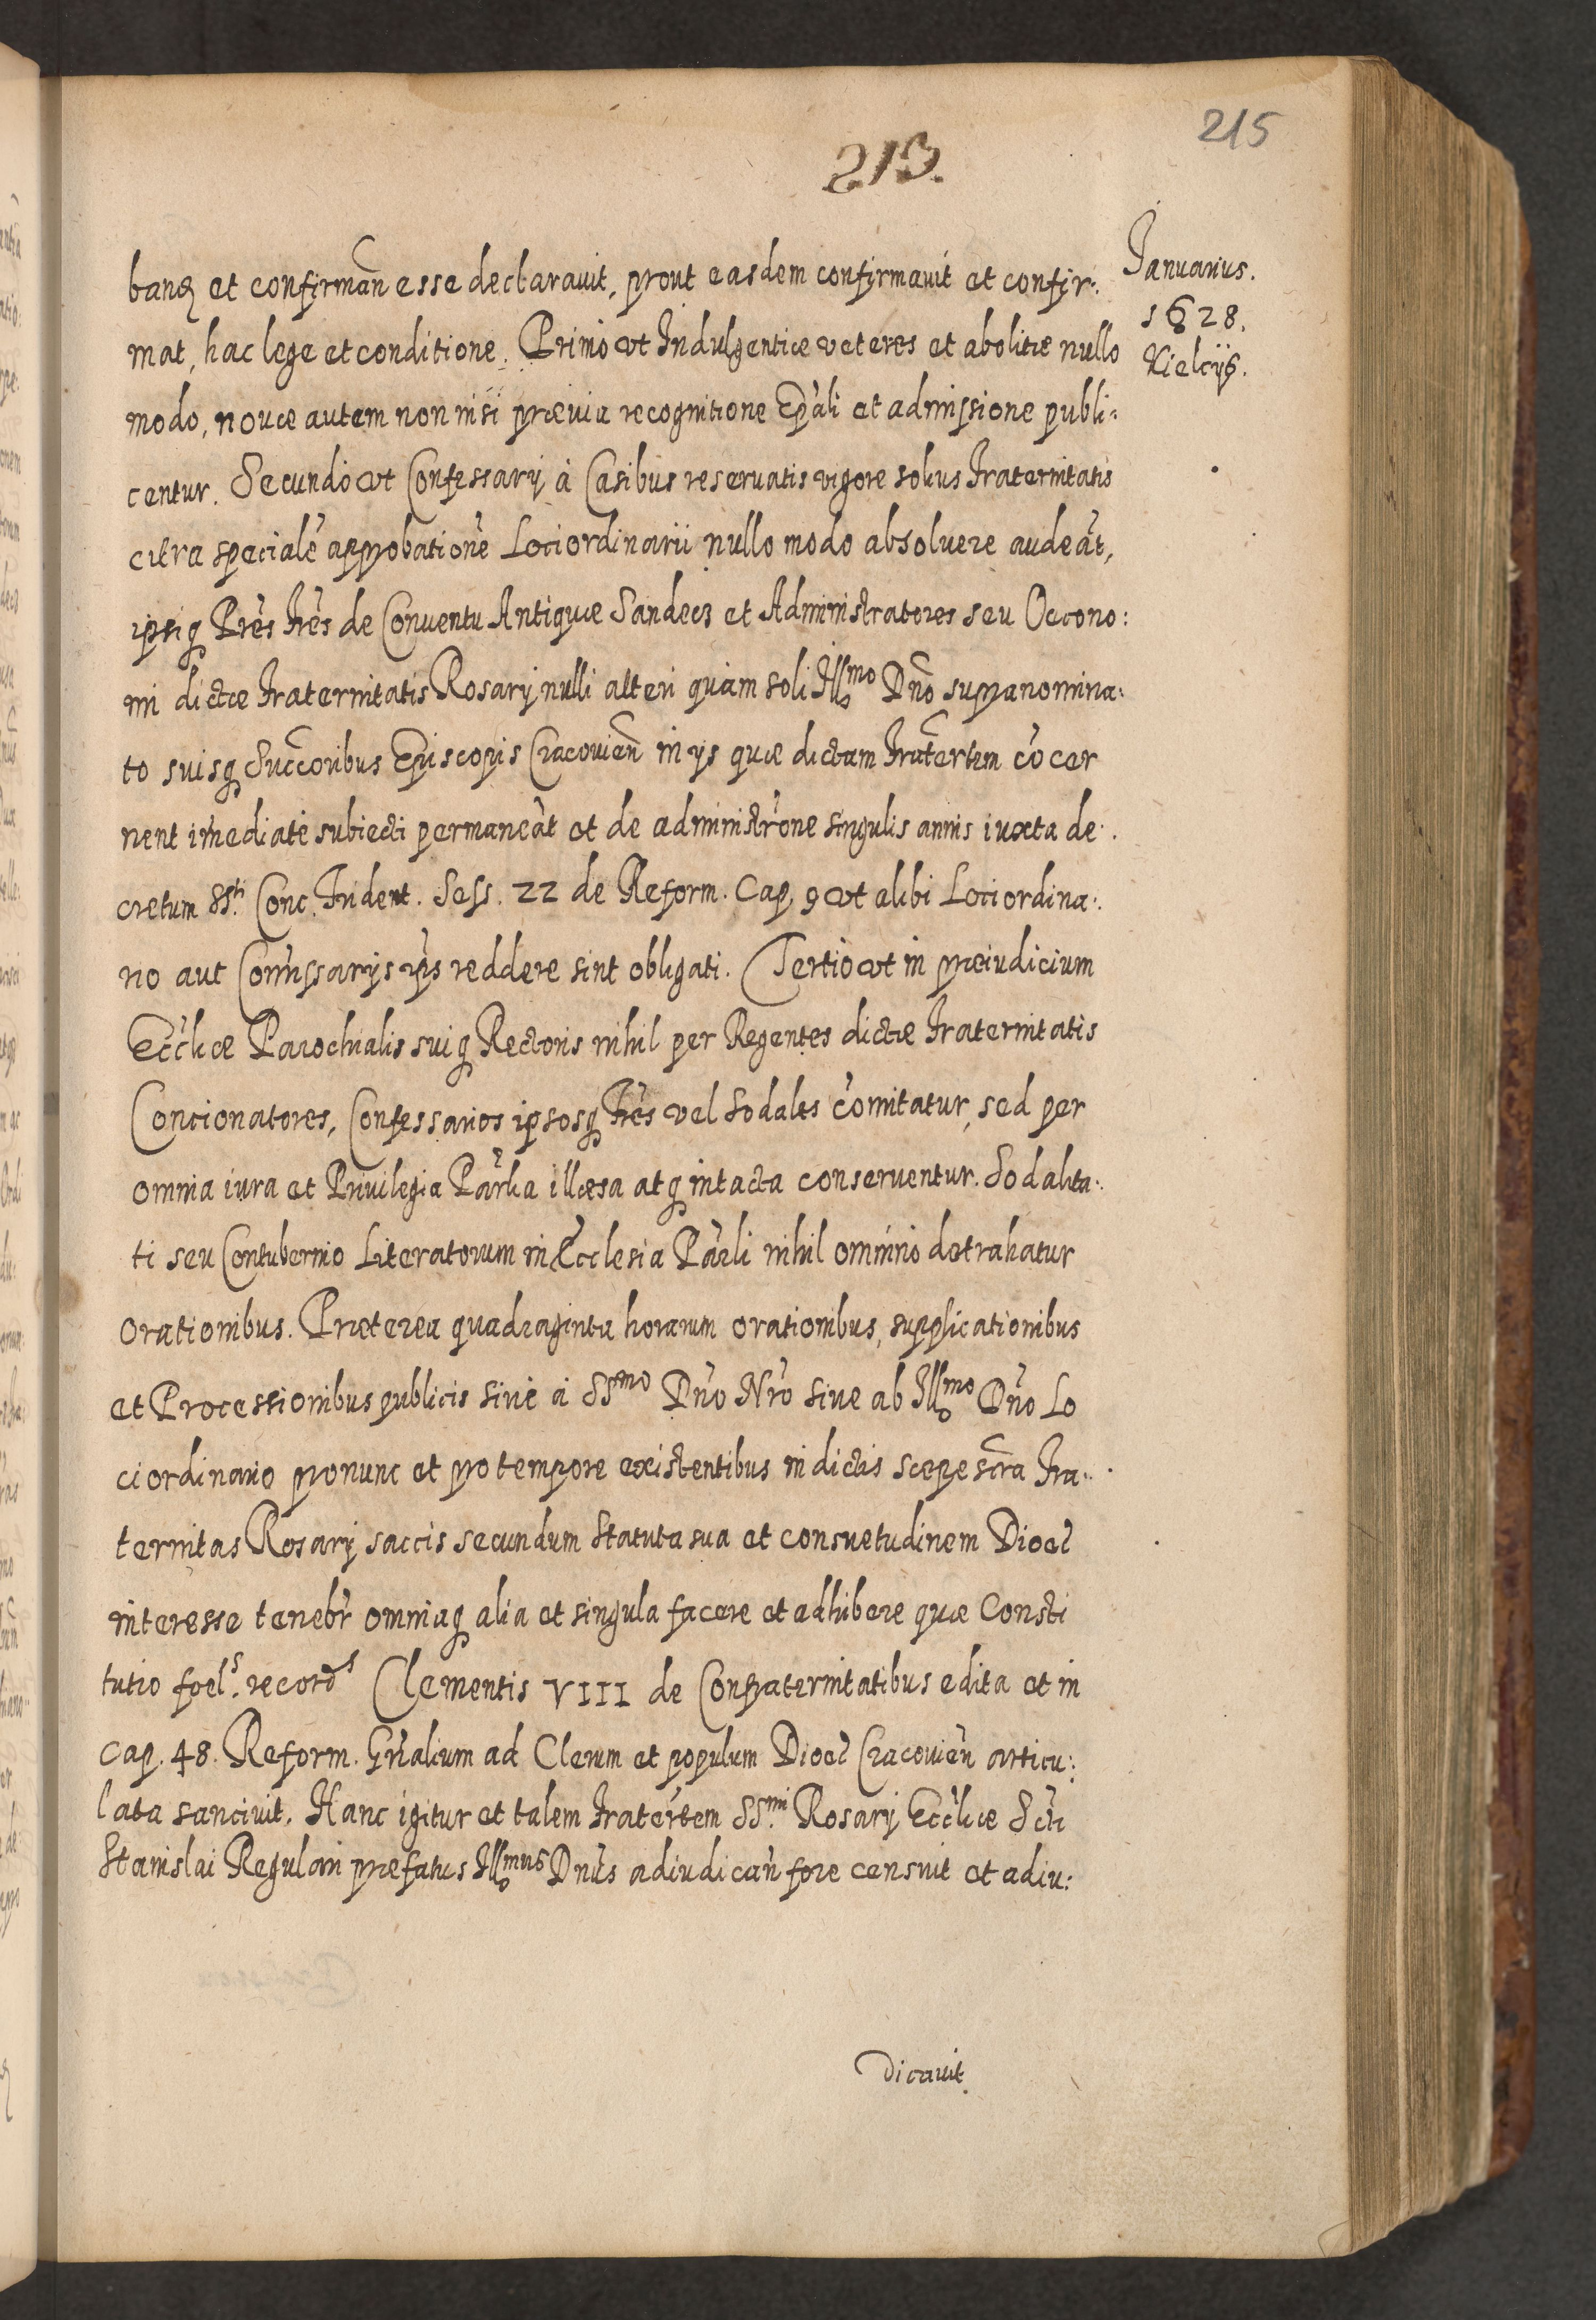 215
213.
Januarius.
1628.
Kielcijs.
bandas et confirman̄ esse declarauit, prout easdem confirmauit et confir:
mat, hac lege et conditione. Primò vt Indulgentiæ veteres et abolitæ nullo
modo, nouæ autem non nisi præuia recognitione Epāli et admissione publi:
centur. Secundò vt Confessarij à Casibus reseruatis vigore solius Fraternitatis
citra specialē approbationē Lociordinarii nullo modo absoluere audeāt,
ipsiq Prēs Frēs de Conuentu Antiquæ Sandecz et Administratores seu Oecono:
mi dictæ Fraternitatis Rosarij nulli alteri quàm soli Illmo Dn̄o supranomina:
to suisq Succ̄oribus Episcopis Cracouien̄ in ijs quæ dictam Fratertem cōcer
nent im̄ediatè subiecti permaneāt et de administrōne singulis annis iuxta de:
cretum SSti Conc. Trident. Sess. 22 de Reform. Cap. 9 vt alibi Lociordina:
rio aut Com̄issarijs ip̄s reddere sint obligati. Tertiò vt in præiudicium
Eccliæ Parochialis suiq Rectoris nihil per Regentes dictæ Fraternitatis
Concionatores, Confessarios ipsosq Frēs vel Sodales cōmitatur, sed per
omnia iura et Priuilegia Pārlia illæsa atq intacta conseruentur. Sodalita:
ti seu Contubernio Literatorum in Ecclesia Pārli nihil omninò detrahatur
orationibus. Præterea quadraginta horarum orationibus, supplicationibus
et Processionibus publicis siuè à SSmo Dn̄o Nrō siue ab Illmo Dn̄o Lo
ciordinario pronunc et pro tempore existentibus indictis sæpescr̄a Fra:
ternitas Rosarij saccis secundum statuta sua et consuetudinem Dioec
interesse tenebr̄ omniaq alia et singula facere et adhibere quæ Consti
tutio foels. records Clementis VIII de Confraternitatibus edita et in
Cap. 48. Reform. Gn̄alium ad Clerum et populum Dioec Cracouien̄ articu:
lata sanciuit. Hanc igitur et talem Fratertem SSmi Rosarij Eccliæ Scti
Stanislai Regulari præfatus Illmus Dn̄us adiudican̄ fore censuit et adiu:
dicauit